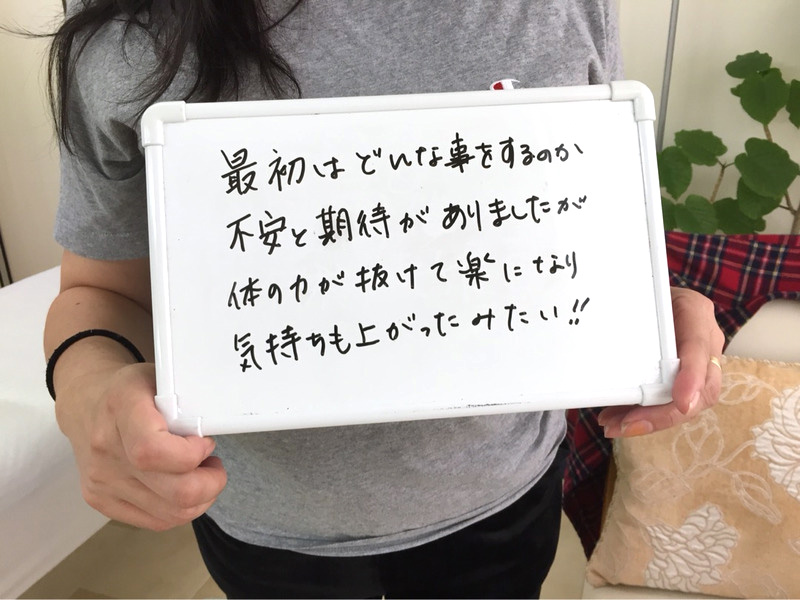 最初はどんな事をするのか
不安と期待がありましたが
体の力が抜けて楽になり
気持ちも上がったみたい!!